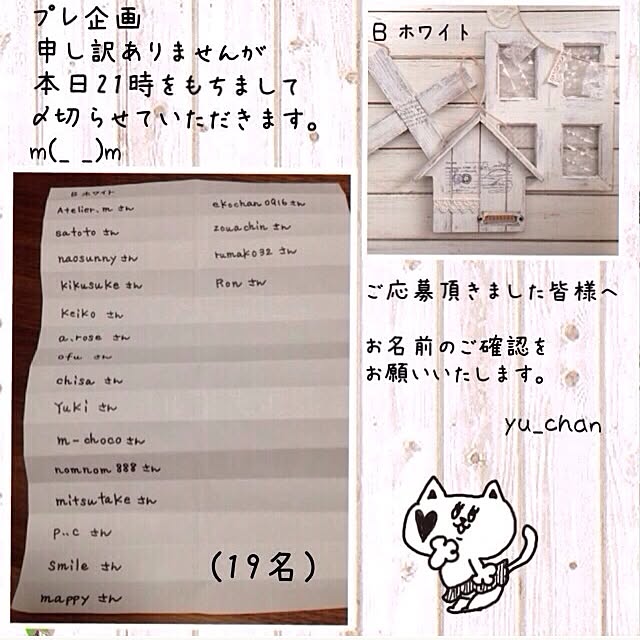 プレ企画
申し訳ありませんが
本日21時をもちまして
〆切らせていただきます。
m(_ _)m
B ホワイト
B ホワイト
Atelier.m さん
satoto さん
naosunny さん
kikusuke さん
keiko さん
a.rose さん
ofu さん
chisa さん
Yuki さん
m-choco さん
nomnom888 さん
mitsutake さん
p..c さん
smile さん
mappy さん
ekochan0916 さん
zouachin さん
rumako32 さん
Ron さん
(19名)
ご応募頂きました皆様へ
お名前のご確認を
お願いいたします。
yu_chan